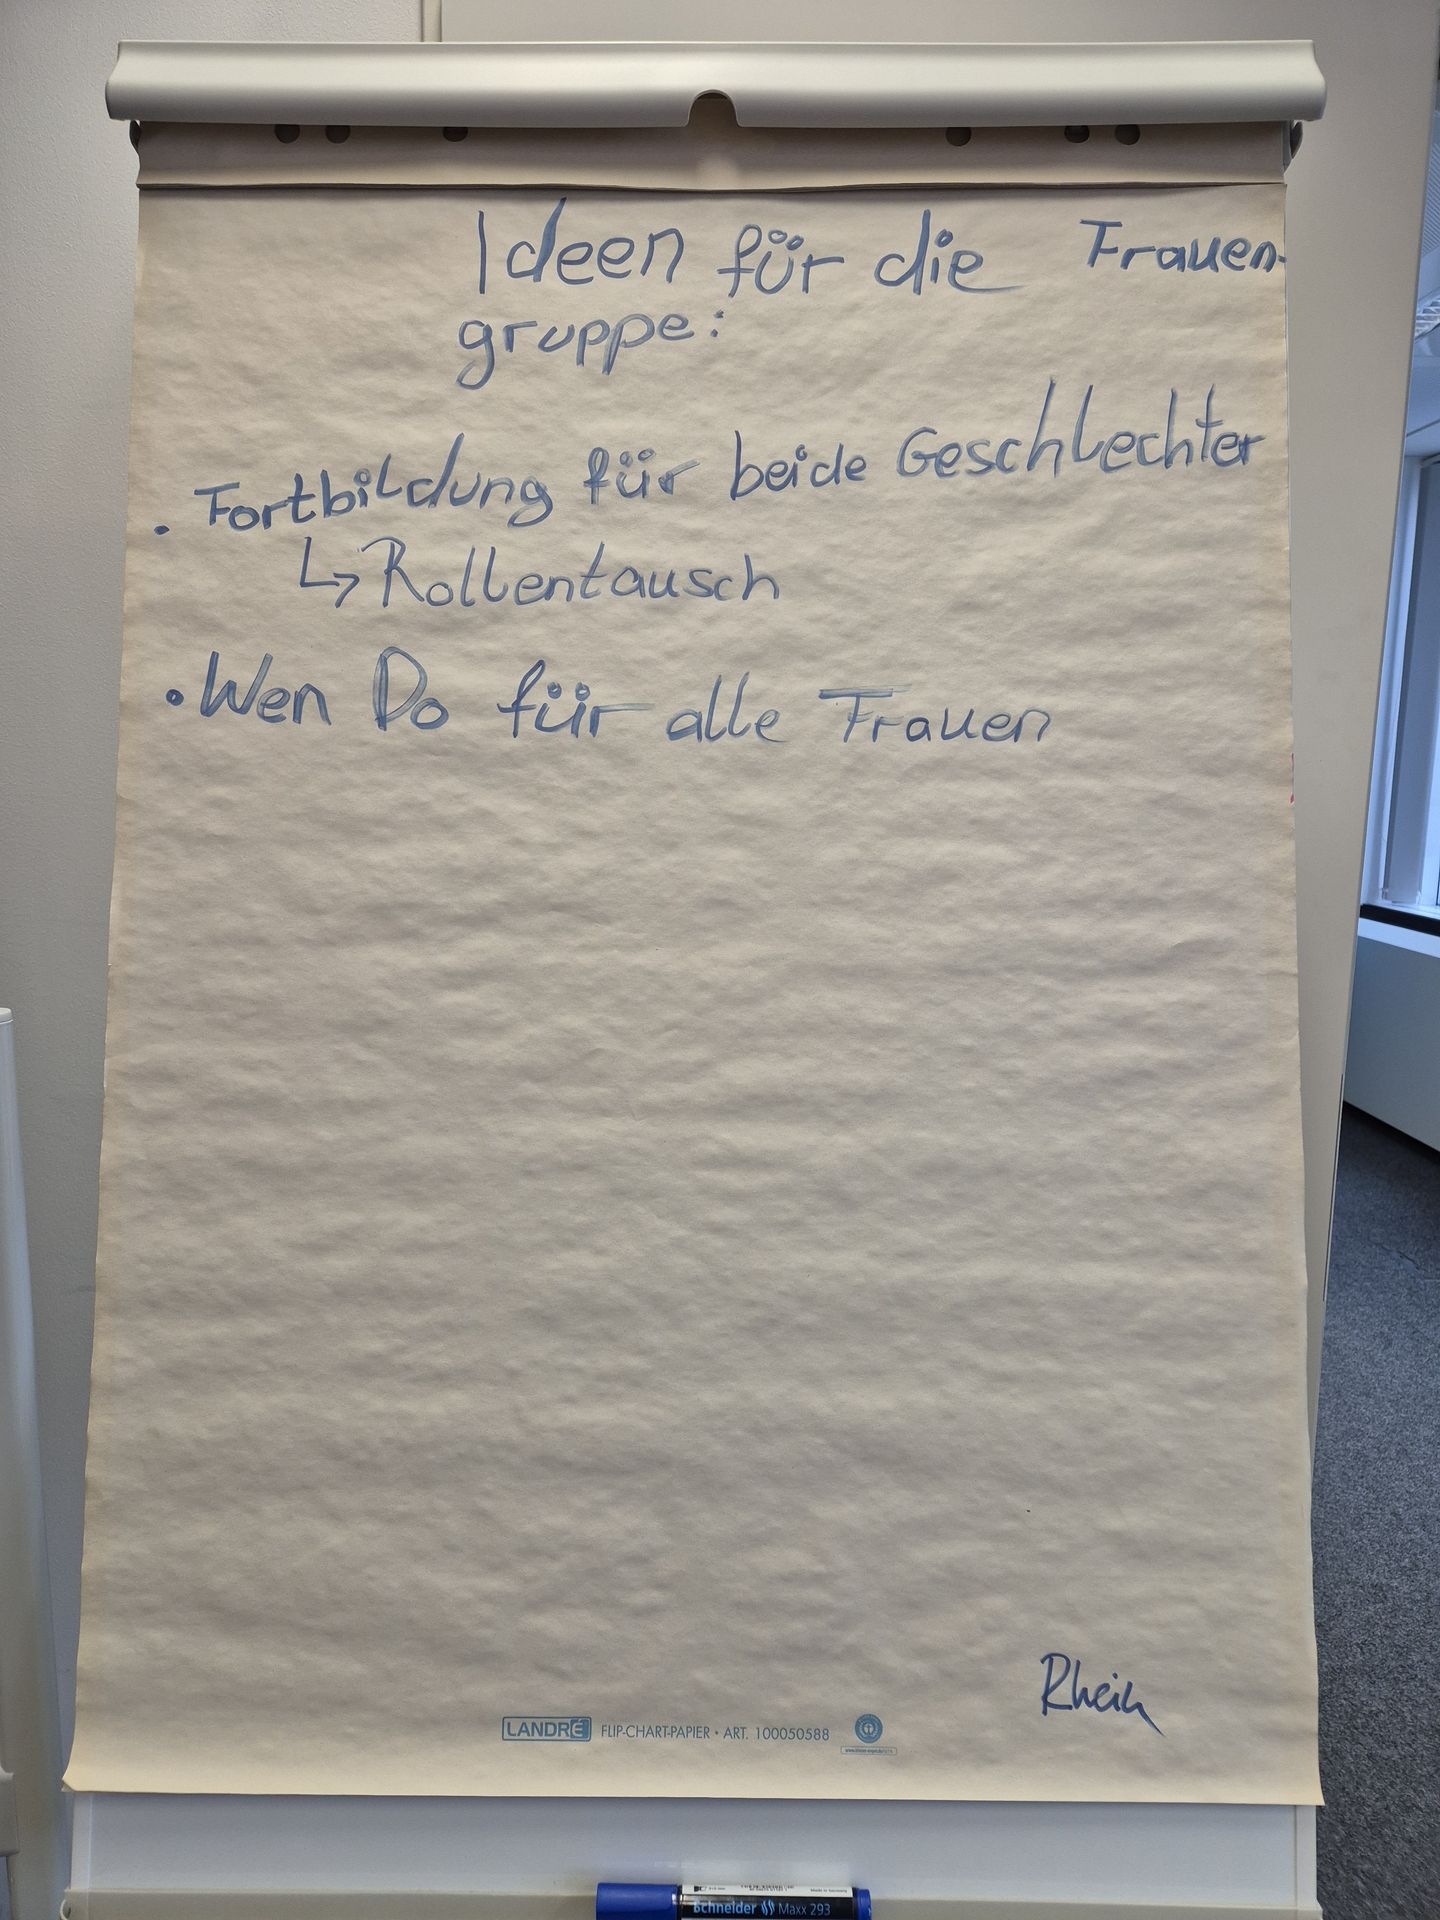 Ideen für die Frauen-
gruppe:
. Fortbildung für beide Geschlechter
↳ Rollentausch
• Wen Do für alle Frauen
Rhein
LANDRÉ FLIP-CHART-PAPIER • ART. 100050588
Schneider Maxx 293